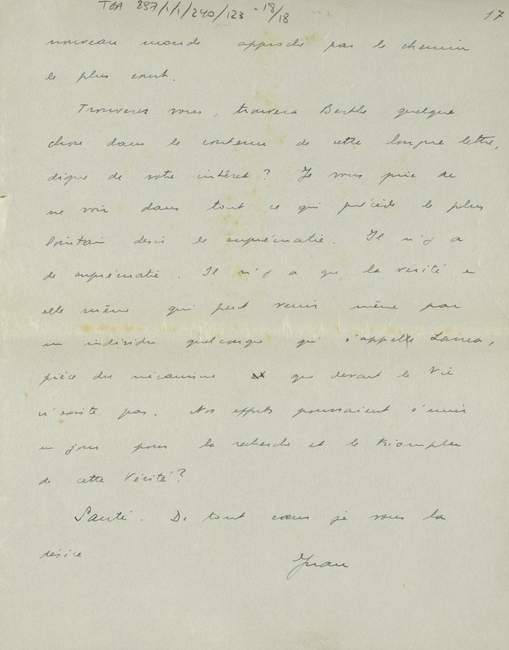 TGA 897/1/1/240/123 - 18/18
17
nouveau monde approche par le chemin
le plus court.
Trouverez vous, trouvera Berthe quelque
chose dans le contenu de cette longue lettre,
digne de votre intérêt? Je vous prie de
ne voir dans tout ce qui précède le plus
lointain désir de suprématie. Il n'y a
de suprématie. Il n'y a que la vérité en
elle même qui peut venir même par
un individu quelconque qui s'appelle Larrea,
pièce du mécanisme que devant la Vie
n'existe pas. Nos efforts pourraient s'unir
un jour pour la recherche et le triomphe
de cette Vérité?
Santé. De tout cœur je vous la
désire
Juan